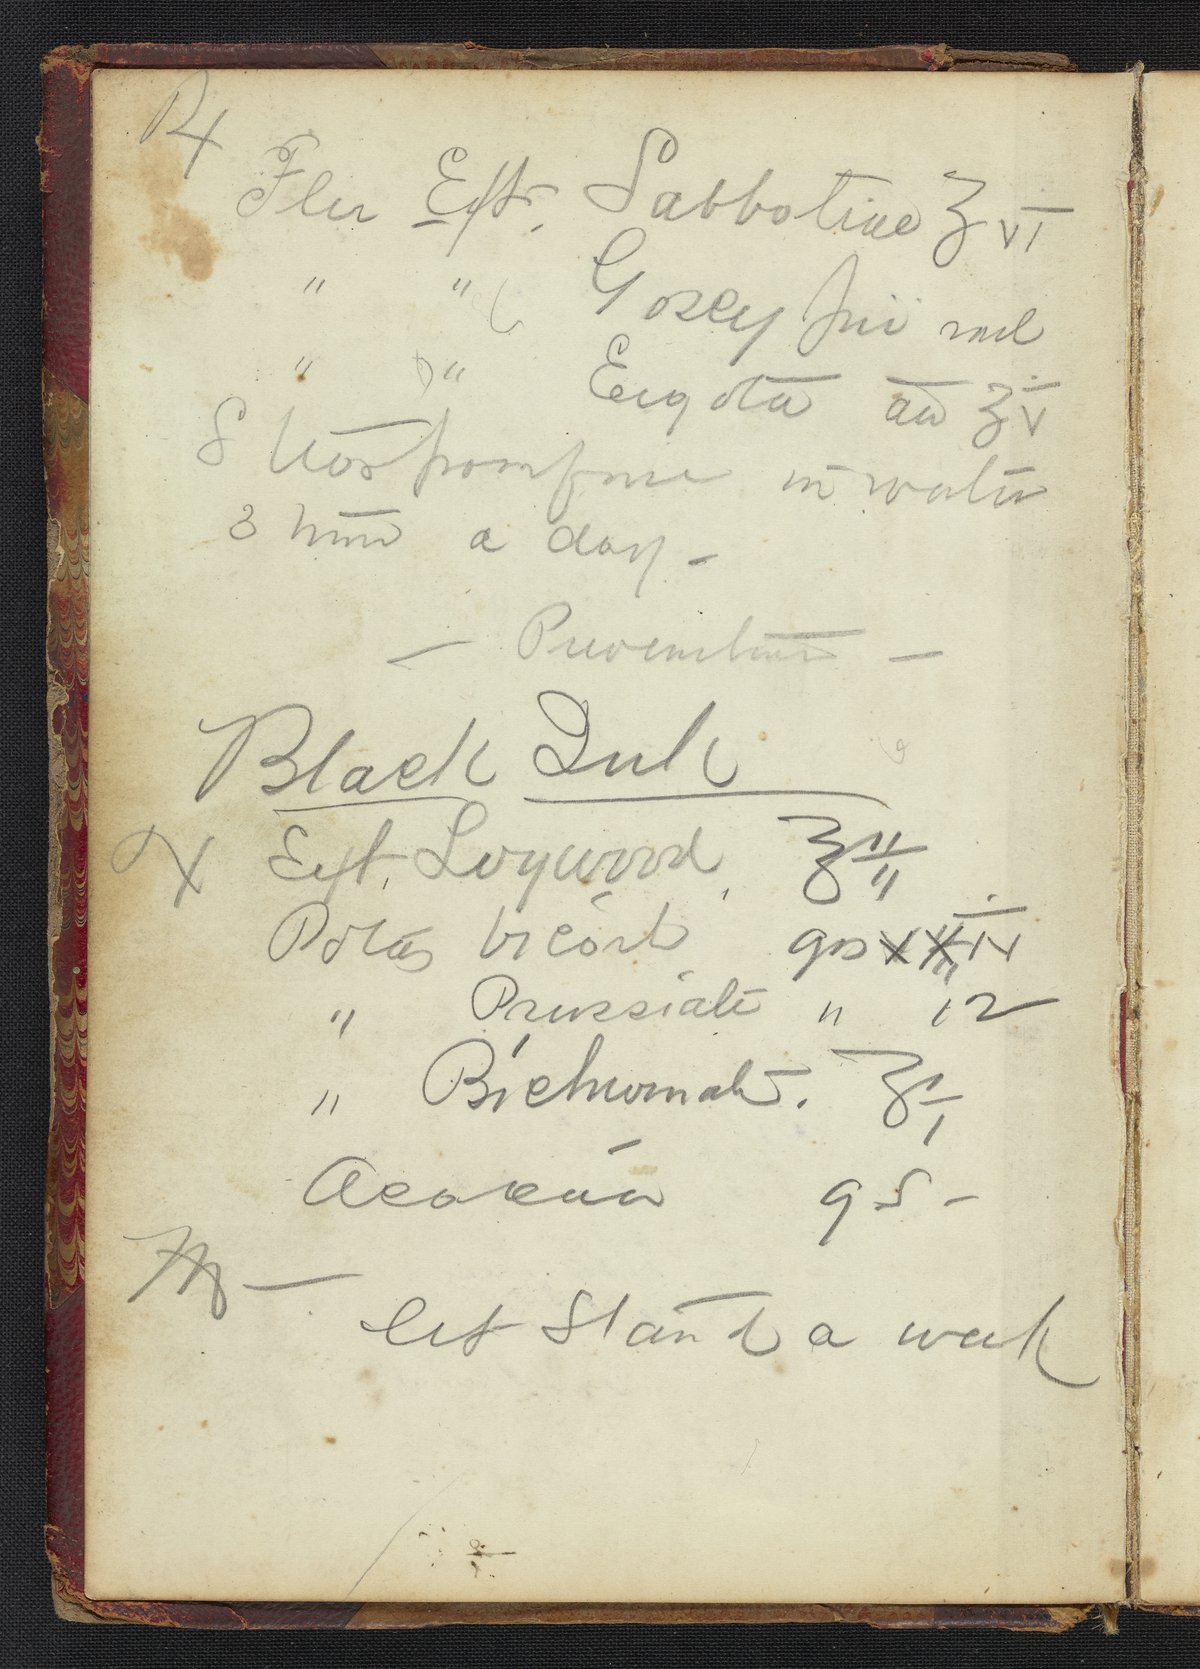 Rx
Flu Ext. Sabbatiae ʒ vi
" " Gosey pii rad
" " Ergota aa ʒ v
S teaspoonfuls in water
3 times a day –
– Prevention –
Black Ink
Rx Ext. Logwood ʒ ii
Potas bicarb grs xiv
" Prussiate " 12
" Bichromate. ʒ i
Acacia q s –
M — let Stand a week